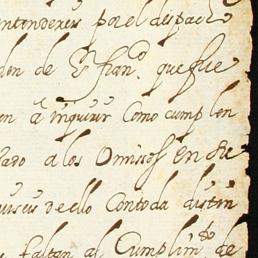 entenderen por el despach
den de S. fran.co que fue
en à inquirir Como cumplen
sado a los Omisos En su
de ello Con toda distin
faltan al Cumplim.to de